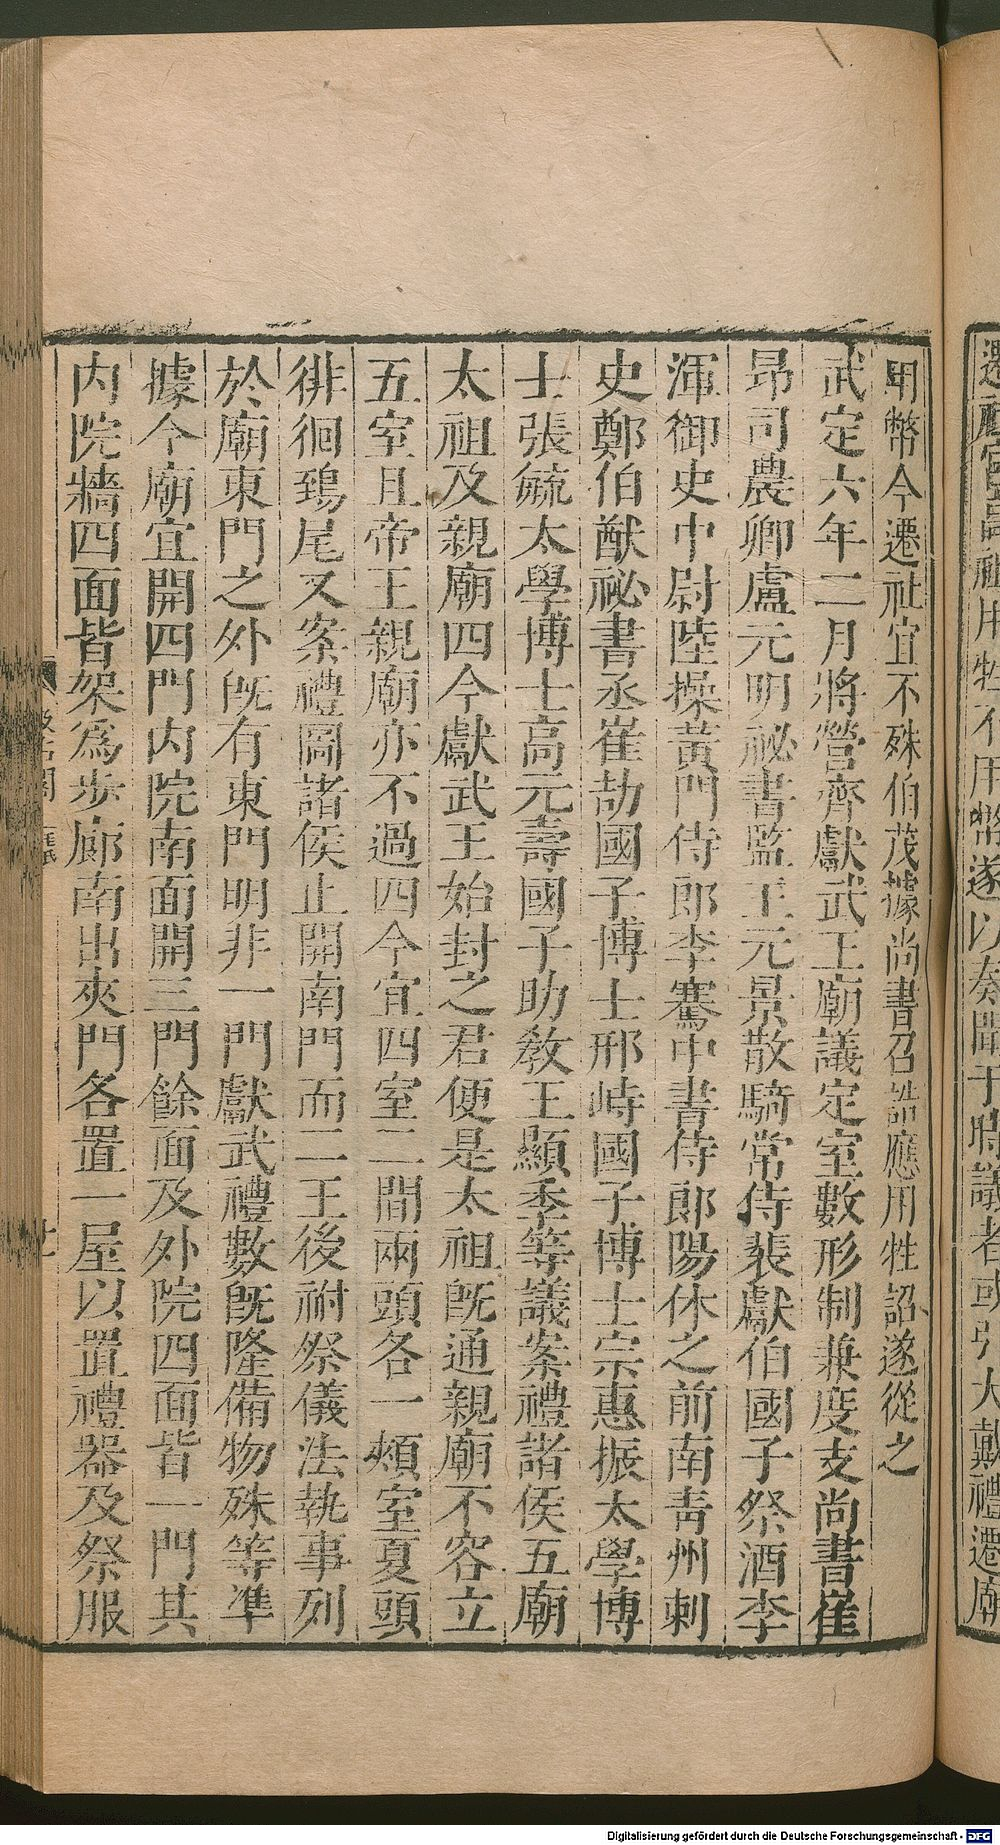 用幣今遷社宜不殊伯茂據尚書召誥應用牲詔遂從之
武定六年二月將營齊獻武王廟議定室數形制兼度支尚書崔
昂司農卿盧元明祕書監王元景散騎常侍裴獻伯國子祭酒李
渾御史中尉陸操黃門侍郎李騫中書侍郎陽休之前南青州刺
史鄭伯猷祕書丞崔劼國子博士邢峙國子博士宗惠振太學博
士張毓太學博士高元壽國子助教王顯季等議案禮諸侯五廟
太祖及親廟四今獻武王始封之君便是太祖旣通親廟不容立
五室且帝王親廟亦不過四今宜四室二間兩頭各一頰室夏頭
徘徊鵄尾又案禮圖諸侯止開南門而二王後祔祭儀法執事列
於廟東門之外旣有東門明非一門獻武禮數旣隆備物殊等準
據今廟宜開四門內院南面開三門餘面及外院四面皆一門其
內院牆四面皆架為步廊南出夾門各置一屋以置禮器及祭服
用牲不用幣遂以奏聞于時議者或引大戴禮遷廟
Digitalisierung gefördert durch die Deutsche Forschungsgemeinschaft - DFG